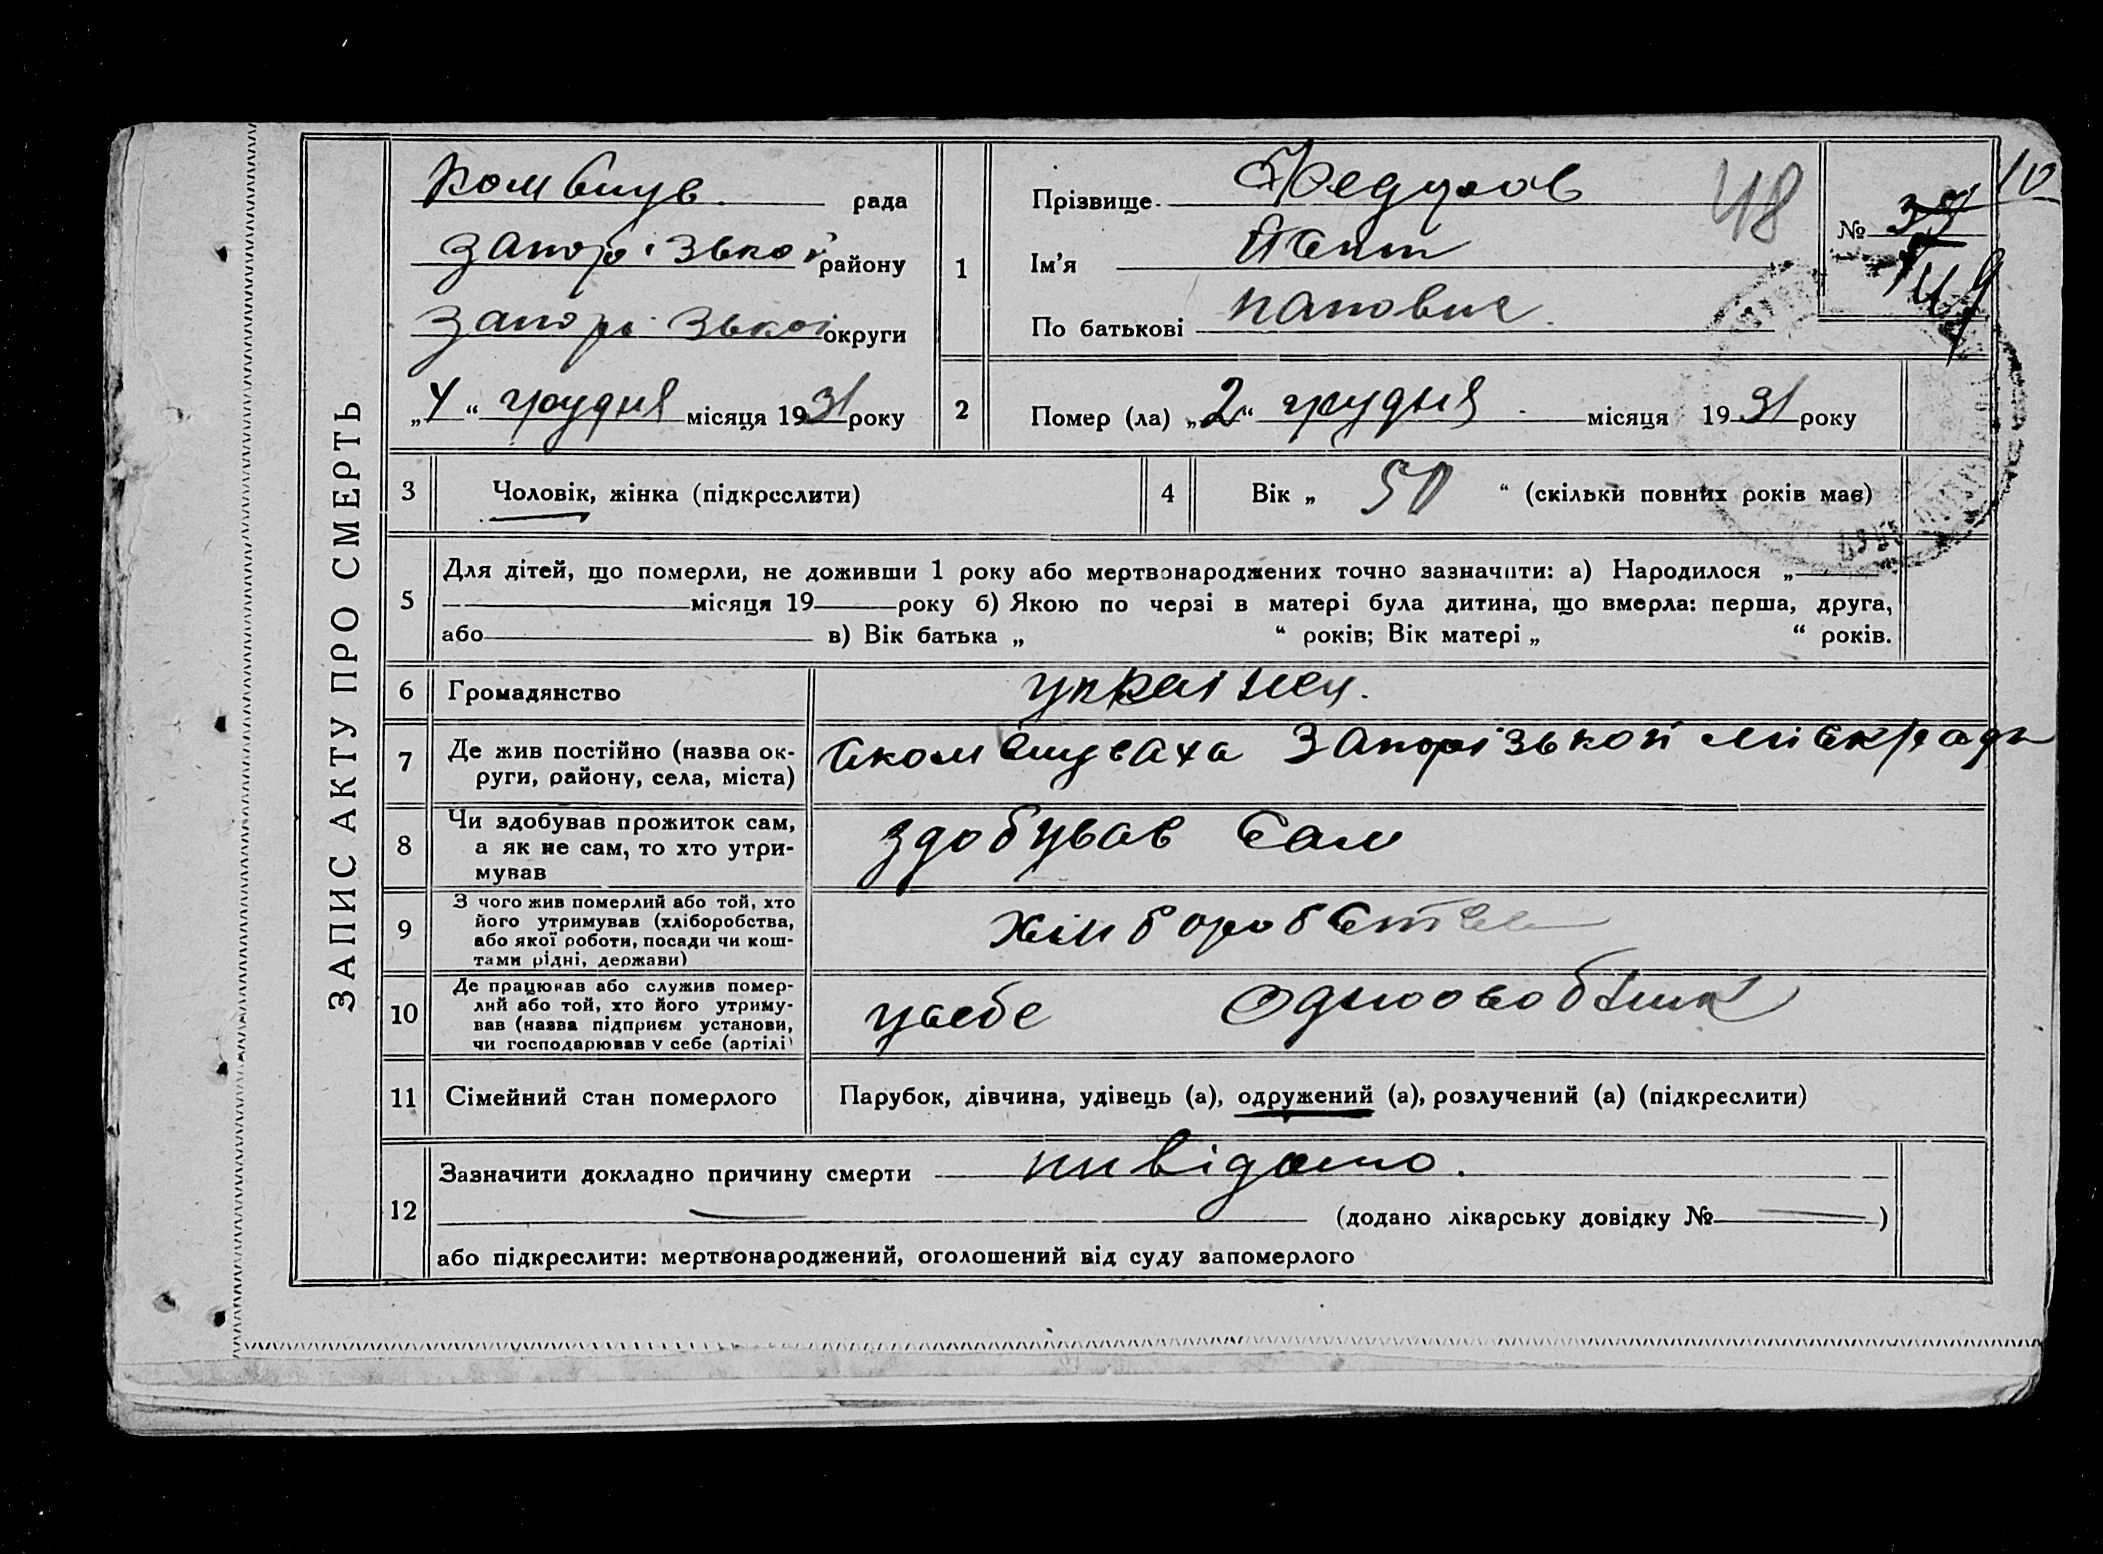 ЗАПИС АКТУ ПРО СМЕРТЬ
Комвшув. рада
Запорізької району
Запорізької округи
„4“ грудня місяця 1931 року
1
Прізвище Федуров
48
Ім’я
По батькові
№ 33
10
2
Помер (ла) „2“ грудня місяця 1931 року
3
Чоловік, жінка (підкреслити)
4
Вік „ 50 “ (скільки повних років має)
5
Для дітей, що померли, не доживши 1 року або мертвонароджених точно зазначити: а) Народилося „
місяця 19 року б) Якою по черзі в матері була дитина, що вмерла: перша, друга,
або в) Вік батька „ “ років; Вік матері „ “ років.
6
Громадянство
українец.
7
Де жив постійно (назва ок-
руги, району, села, міста)
Запорізькой міскради
8
Чи здобував прожиток сам,
а як не сам, то хто утри-
мував
здобував сам
9
З чого жив померлий або той, хто
його утримував (хліборобства,
або якої роботи, посади чи кош-
тами рідні, держави)
хліборобства
10
Де працював або служив помер-
лий або той, хто його утриму-
вав (назва підприєм установи,
чи господарював у себе (артілі)
усебе одноособник
11
Сімейний стан померлого
Парубок, дівчина, удівець (а), одружений (а), розлучений (а) (підкреслити)
12
Зазначити докладно причину смерти нивідомо.
(додано лікарську довідку № — )
або підкреслити: мертвонароджений, оголошений від суду запомерлого